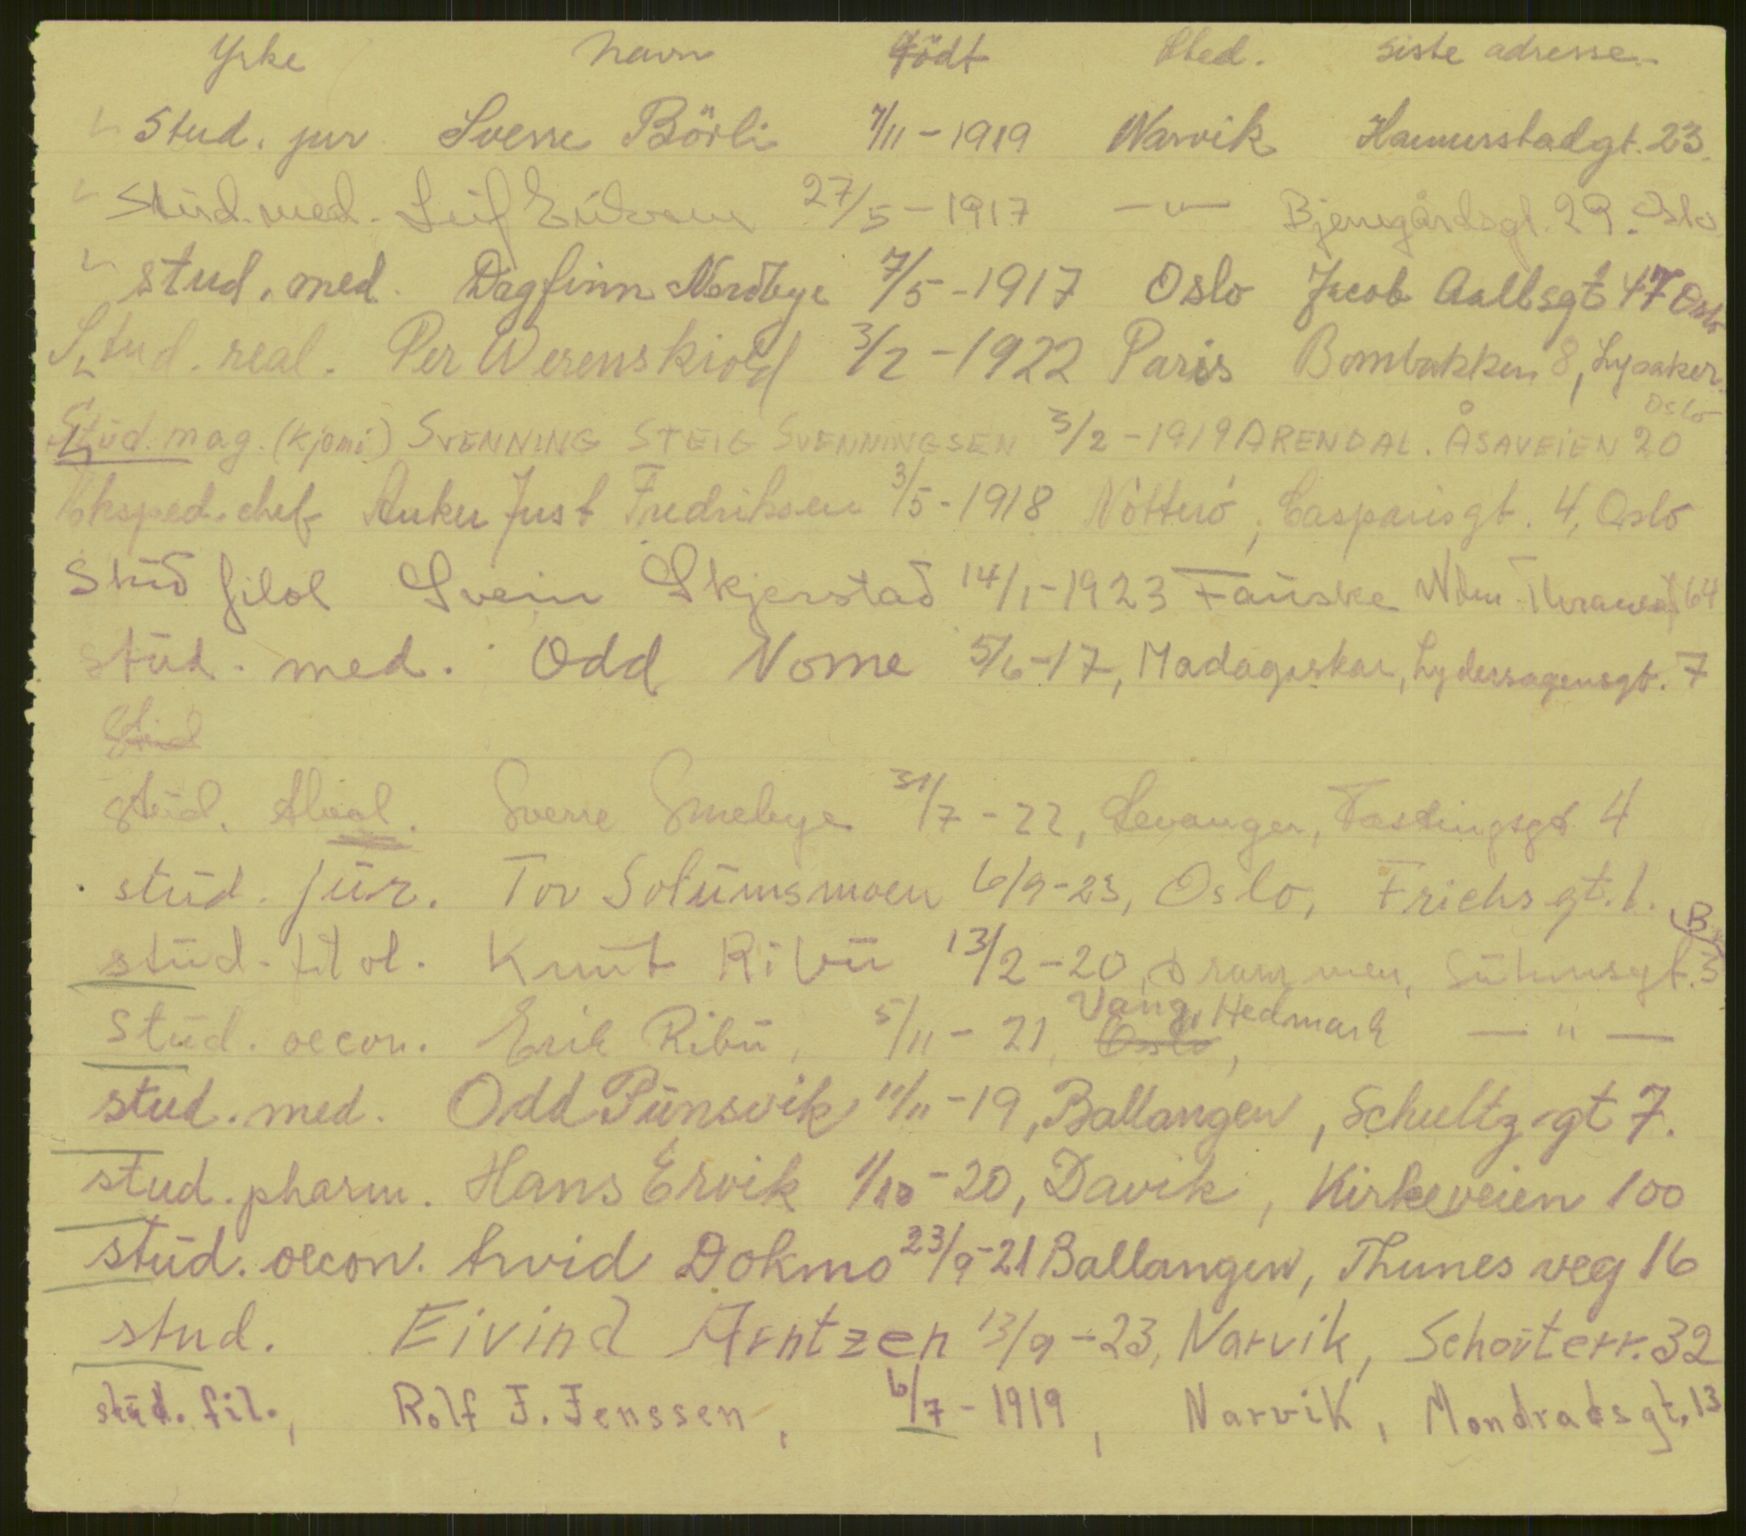 Yrke Navn Född Sted. Siste adresse.
Stud. jur Sverre Börli 7/11 - 1919 Narvik Hammerstadgt. 23.
Stud. med. Leif 27/5 - 1917 — " — Bjerregårdsgt. 29. Oslo
stud. med. Dagfinn Nordbye 7/5 - 1917 Oslo Jacob Aallsgt 47 Oslo
Stud. real. Per Werenskiold 3/2 - 1922 Paris Bombakken 8, Lysaker.
Oslo
Stud. mag. (kjemi) SVENNING STEIG SVENNINGSEN 3/2 - 1919 ARENDAL. ÅSAVEIEN 20
Eksped. chef Anker Just Fredriksen 3/5 - 1918 Nötterö, Casparisgt. 4, Oslo
Stud filol Svein Skjerstad 14/1 - 1923 Fauske 64
stud. med. Odd Nome 5/6 - 17, Madagaskar, Lydersagensgt. 7
Stud
stud. real. Sverre Smebye 31/7 - 22, Levanger, Fastingsgt 4
stud. jur. Tor Solumsmoen 6/9 - 23, Oslo, Frichsgt. 1.
B
stud. filol. Knut Ribu 13/2 - 20, Drammen, Suhmsgt. 3
Vang, Hedmark
stud. oecon. Erik Ribu, 5/11 - 21, Oslo, — " —
stud. med. Odd Punsvik 11/11 - 19, Ballangen, Schultzgt 7.
stud. pharm. Hans Ervik 1/10 - 20, Davik, Kirkeveien 100
stud. oecon. Arvid Dokmo 23/9 - 21 Ballangen, Thunes veg 16
stud. Eivind Arntzen 13/9 - 23, Narvik, Schouterr. 32
stud. fil., Rolf J. Jenssen, 6/7 - 1919, Narvik, Mondradsgt. 13